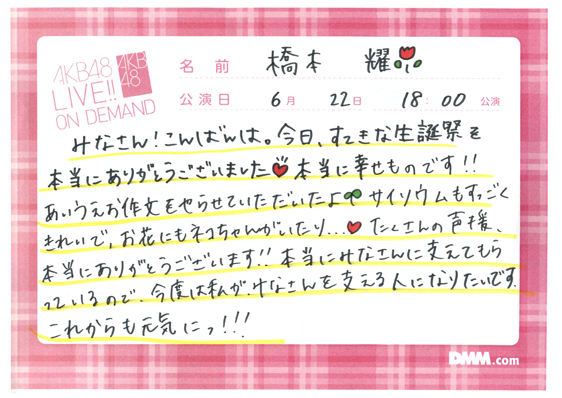 AKB48
LIVE!!
ON DEMAND
AKB
48
名前 橋本 耀
公演日 6月 22日 18:00 公演
みなさん!こんばんは。今日、すてきな生誕祭を
本当にありがとうございました 本当に幸せものです!!
あいうえお作文をやらせていただいたよ サイリウムもすっごく
きれいで、お花にもネコちゃんがいたり...たくさんの声援、
本当にありがとうございます!!本当にみなさんに支えてもら
っているので、今度は私が、みなさんを支える人になりたいです。
これからも元気にっ!!!
DMM.com